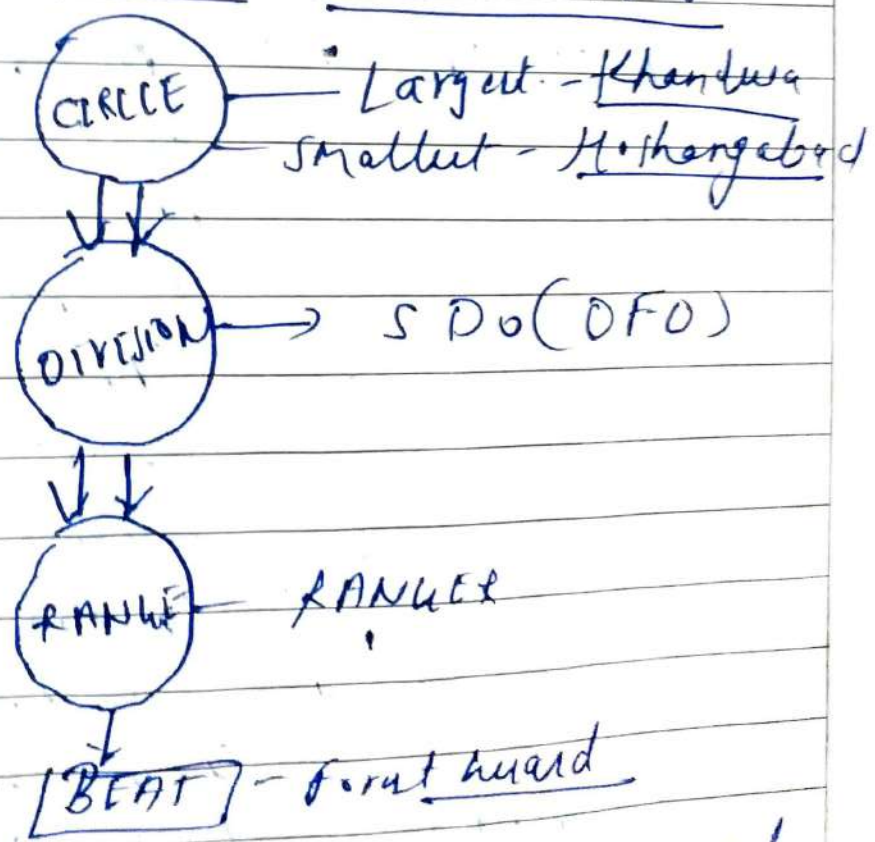 CIRCLE - Largest - Khandwa
Smallest - Hoshangabad
DIVISION → SDO (DFO)
RANGE - RANGER
BEAT - Forest Guard